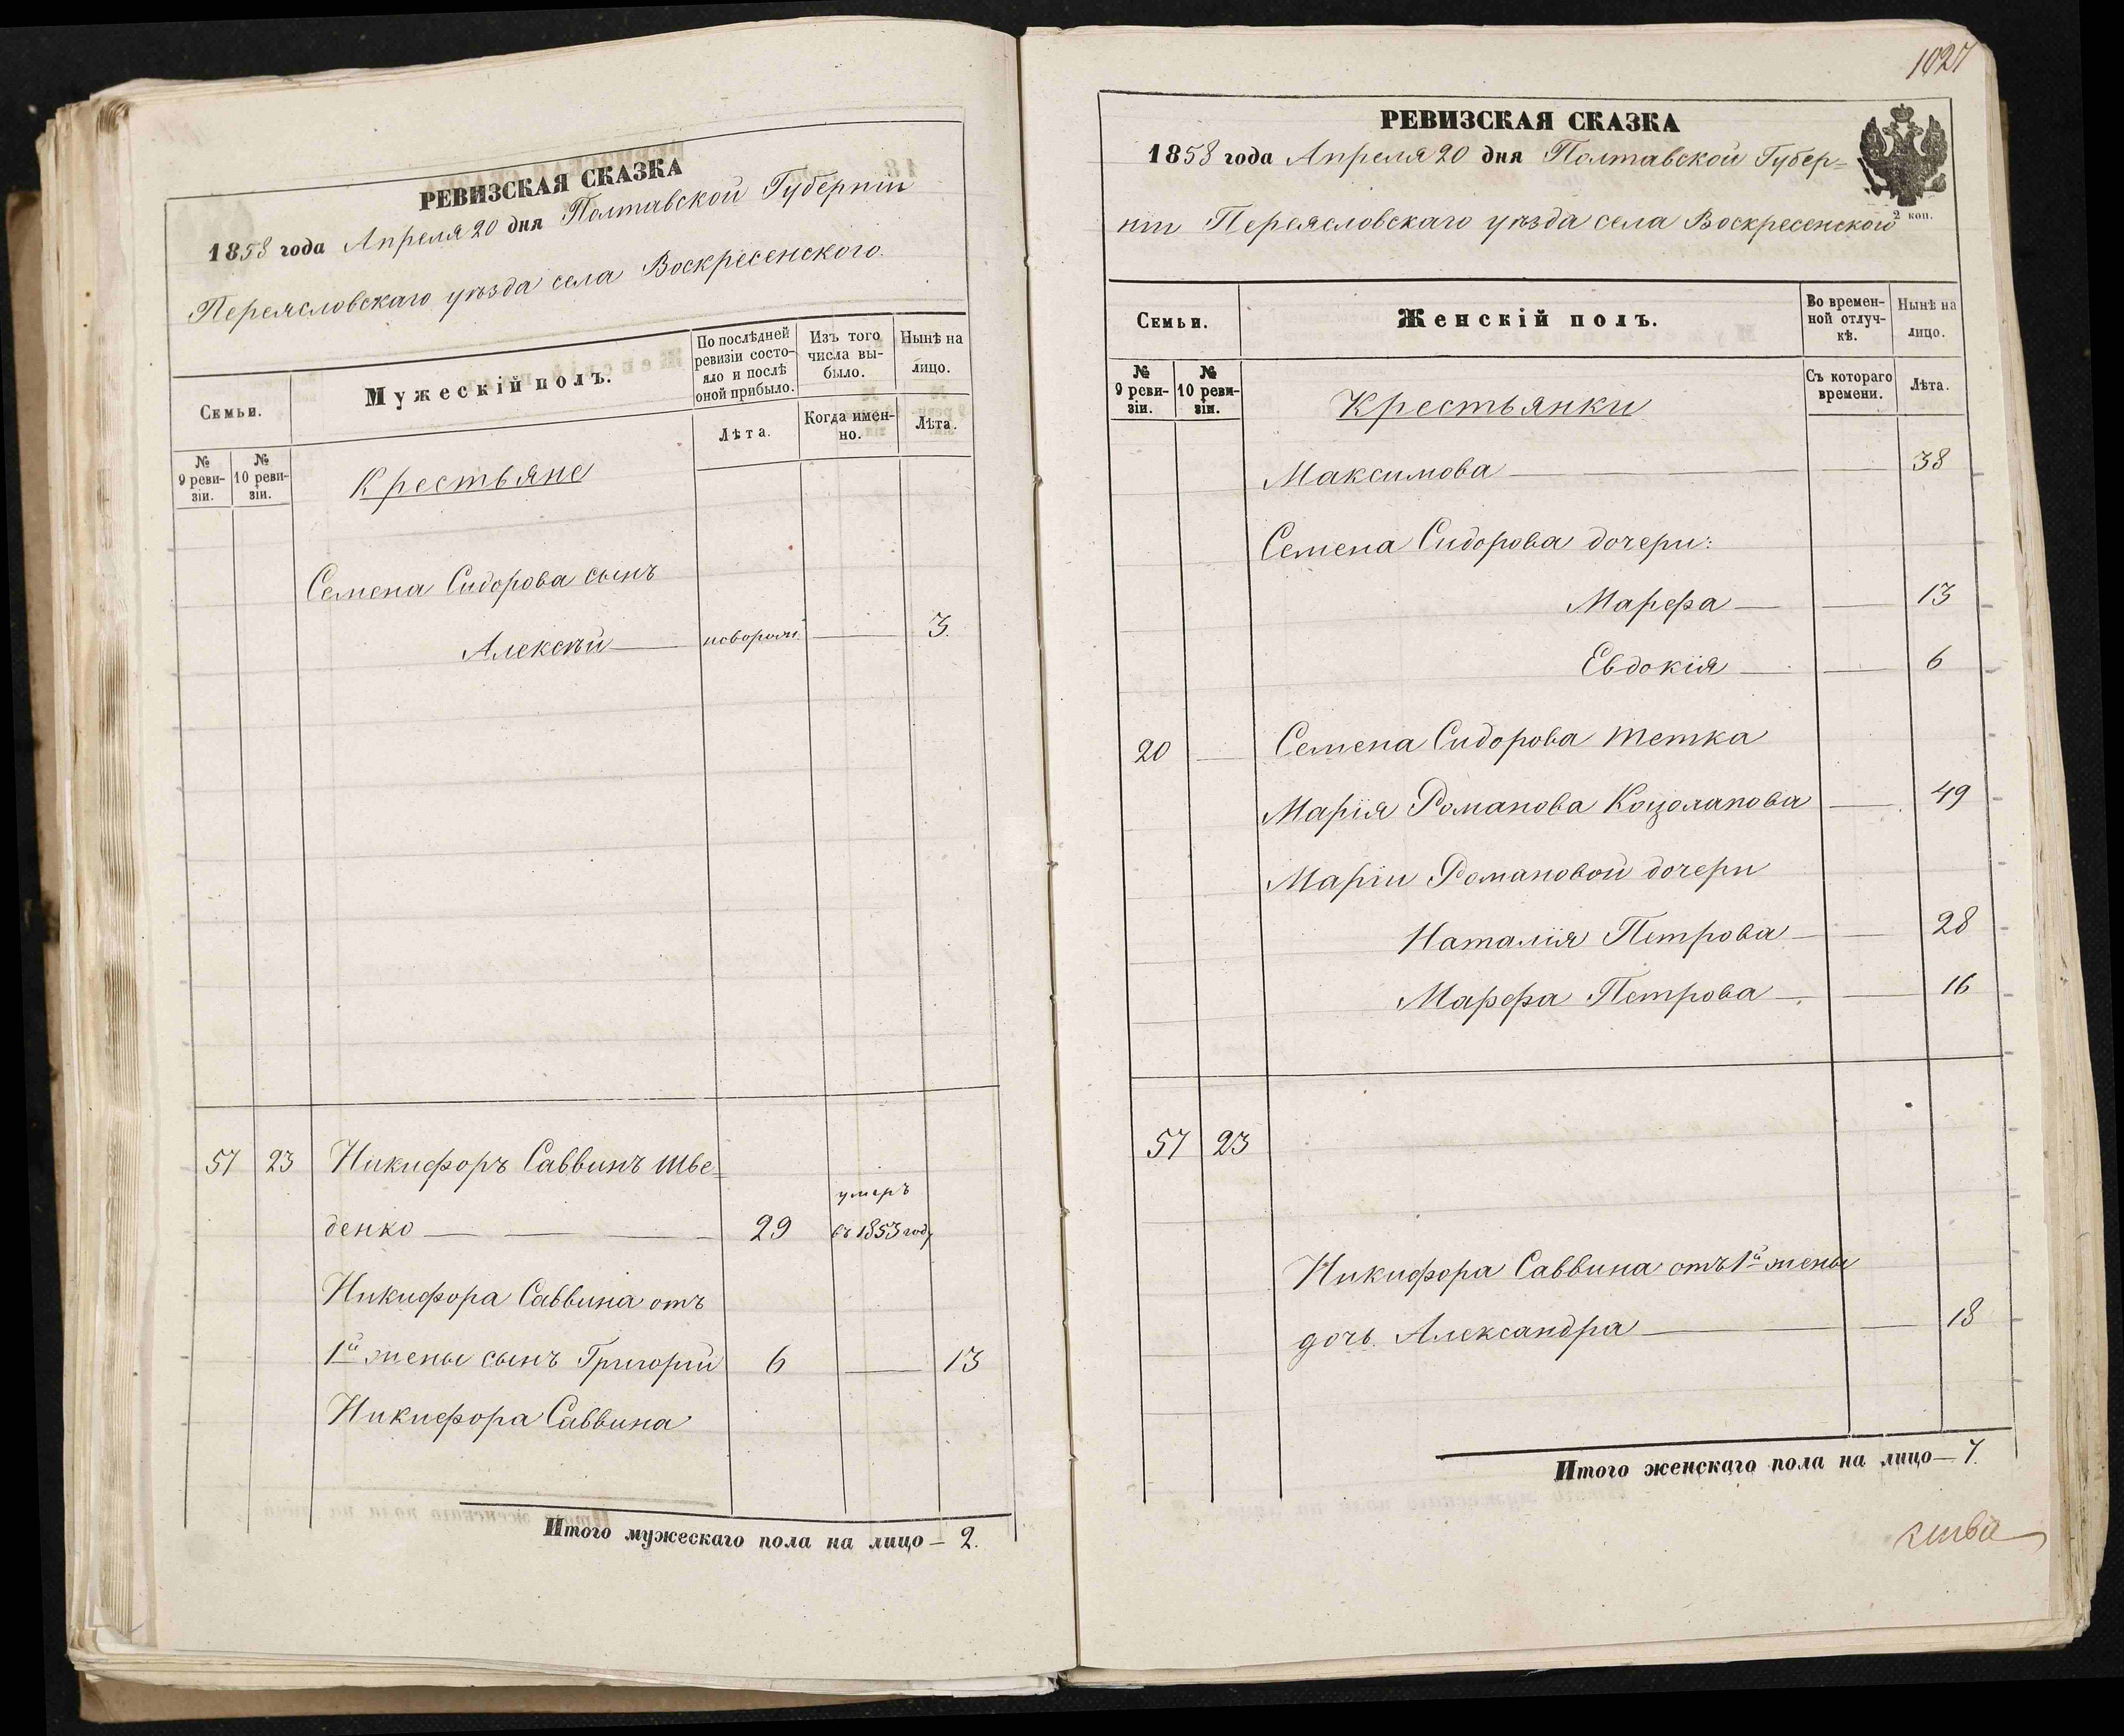 РЕВИЗСКАЯ СКАЗКА
1858 года Апреля 20 дня Полтавской Губерніи
Переясловскаго уѣзда села Воскресенского.
Семьи.
Мужескій полъ.
По послѣдней ревизіи состояло и послѣ оной прибыло.
Изъ того числа выбыло.
Нынѣ на лицо.
№ 9 ревизіи.
№ 10 ревизіи.
Крестьяне
Лѣта.
Когда именно.
Лѣта.
Семена Сидорова сынъ
Алексѣй — — 3.
57 23 Никифоръ Саввинъ Шве=
умеръ
денко — — — 29 въ 1853 году
Никифора Саввина отъ
1й жены сынъ Григорій 6 — 13
Никифора Саввина
Итого мужескаго пола на лицо — 2.
1027
РЕВИЗСКАЯ СКАЗКА
1858 года Апреля 20 дня Полтавской Губер=
ніи Переясловскаго уѣзда села Воскресенского
2 коп.
Семьи.
Женскій полъ.
Во временной отлучкѣ.
Нынѣ на лицо.
№ 9 ревизіи.
№ 10 ревизіи.
Крестьянки
Съ котораго времени.
Лѣта.
Максимова — — 38
Семена Сидорова дочери:
Марфа — — 13
Евдокія — — 6
20 — Семена Сидорова тетка
Марія Романова Коцолапова — 49
Маріи Романовой дочери
Наталія Петрова — — 28
Марфа Петрова — — 16
57 23
Никифора Саввина отъ 1й жены
дочь Александра — — 18
Итого женскаго пола на лицо — 7.